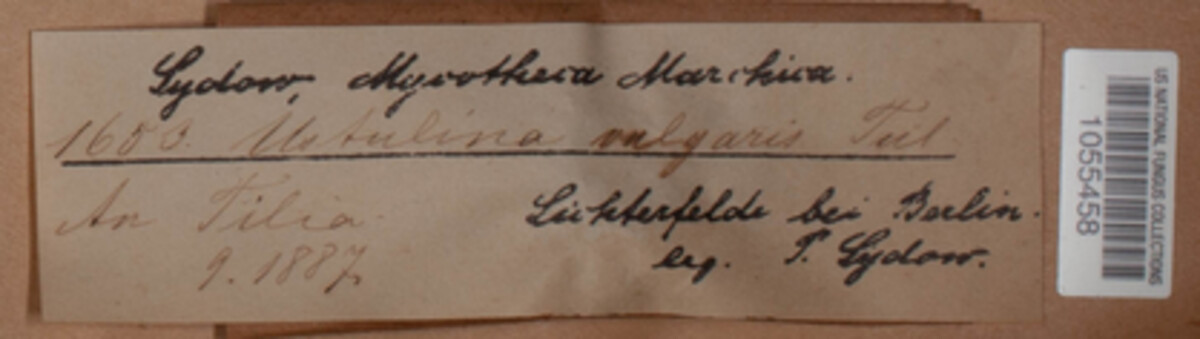 Sydow, Mycotheca Marchica.
1653. Ustulina vulgaris Tul.
An Tilia.
9. 1887.
Lichterfelde bei Berlin.
leg. P. Sydow.
US NATIONAL FUNGUS COLLECTIONS
1055458